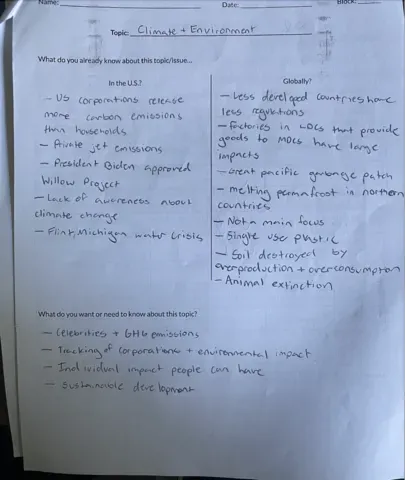 Name:
Date:
Block:
Topic: Climate + Environment
What do you already know about this topic/issue...
In the U.S.?
– US corporations release
more carbon emissions
than households
– Private jet emissions
– President Biden approved
Willow Project
– Lack of awareness about
climate change
– Flint, Michigan water crisis
Globally?
– Less developed countries have
less regulations
– Factories in LDCs that provide
goods to MDCs have large
impacts
– Great pacific garbage patch
– melting permafrost in northern
countries
– Not a main focus
– Single use plastic
– Soil destroyed by
overproduction + overconsumption
– Animal extinction
What do you want or need to know about this topic?
– Celebrities + GHG emissions
– Tracking of corporations + environmental impact
– Individual impact people can have
– Sustainable development